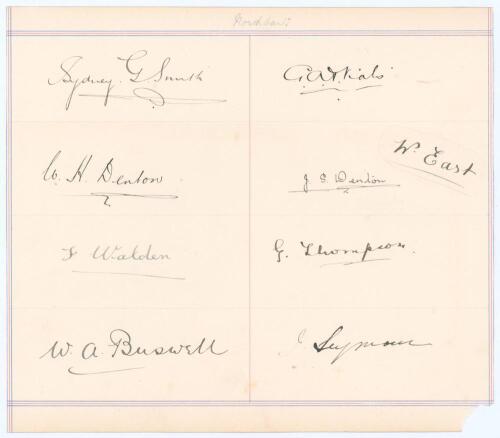 Northants
Sydney G Smith
G.A.T. Vials
W. East
W. H. Denton
J. S. Denton
F Walden
G. Thompson.
W. A. Buswell
J Seymour